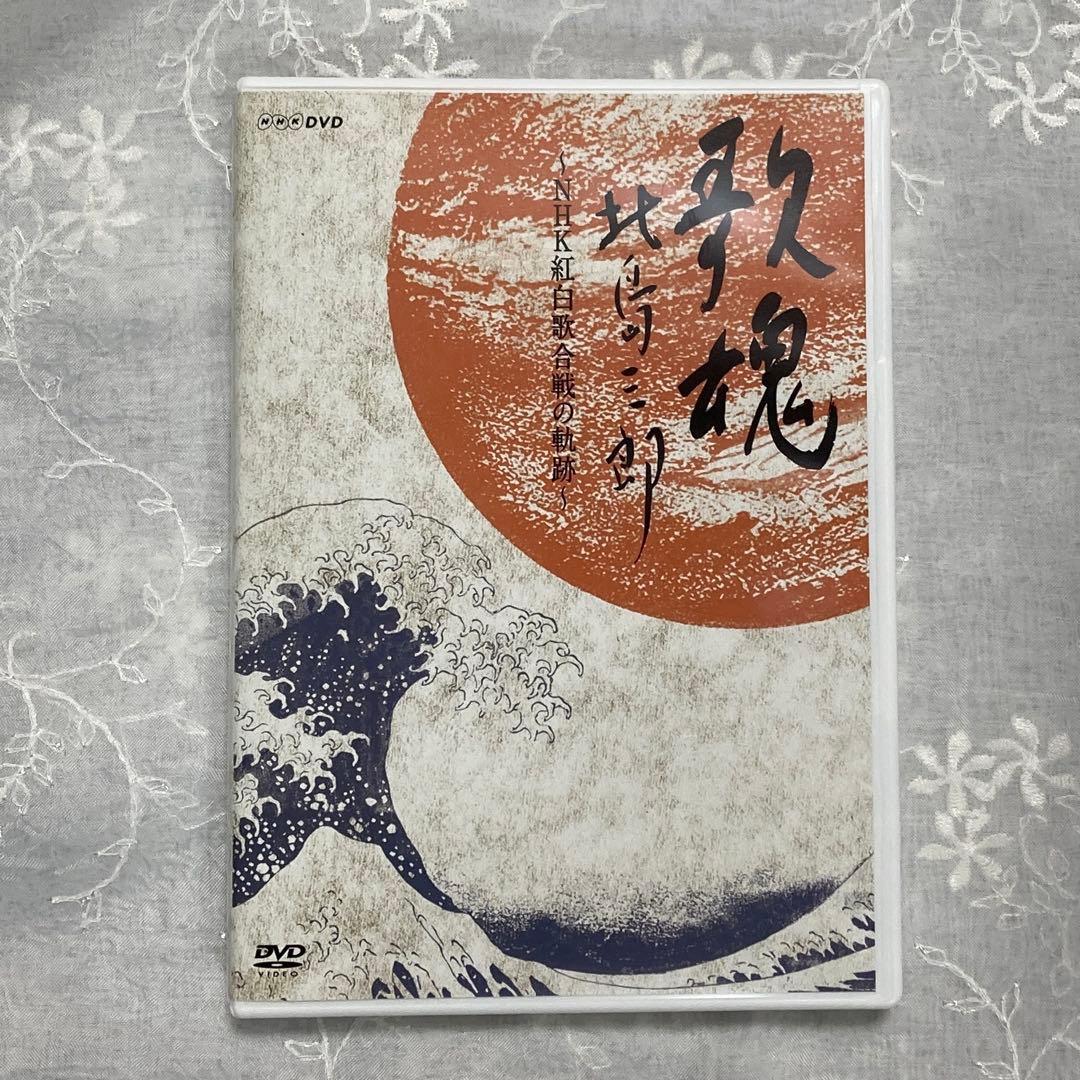 NHK DVD
歌魂
北島三郎
～NHK紅白歌合戦の軌跡～
DVD
VIDEO